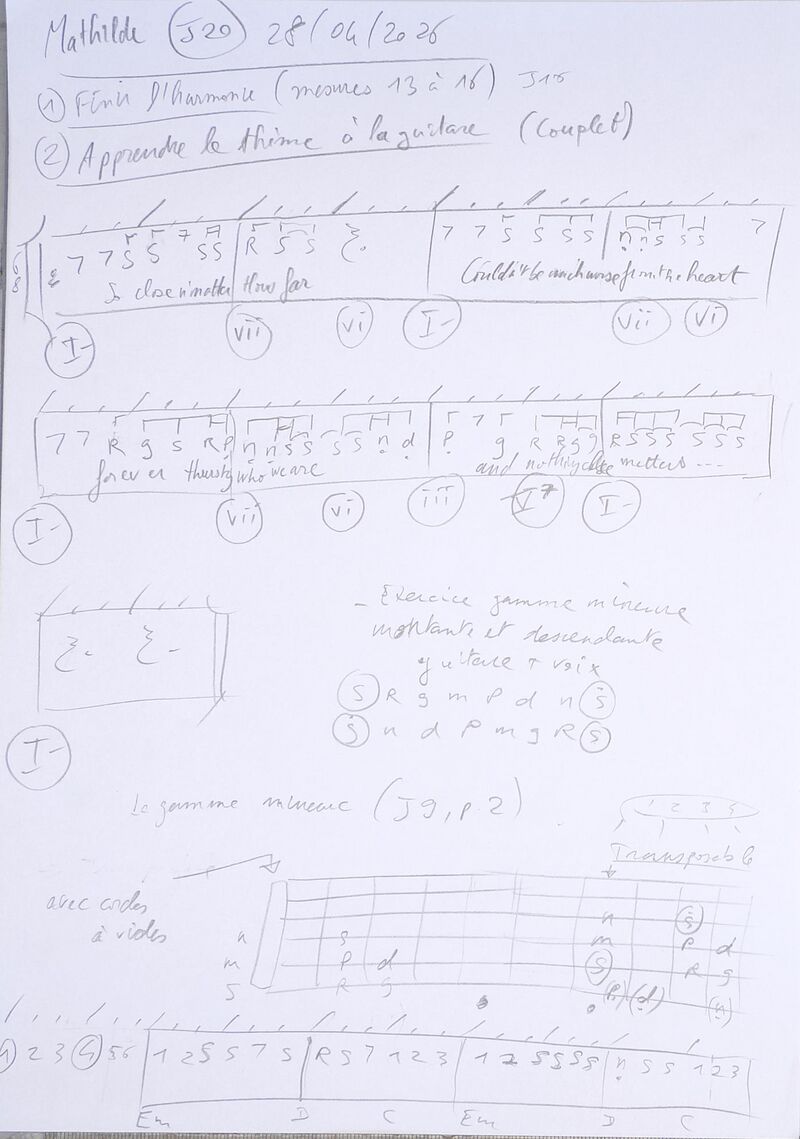 Mathilde J20 28/04/2026
① Finir l'harmonie (mesures 13 à 16) J16
② Apprendre le thème à la guitare (Couplet)
6 8 7 7 S S 7 S S R S S 7 7 S S S S n n S S S 7
So close no matter How far Couldn't be much more from the heart
I- vii vi I- vii vi
7 7 R g S R P n n S S S S n d P 7 g R R g g R S S S S S S
forever trusting who we are and nothing else matters ...
I- vii vi iii V7 I-
I-
- Exercice gamme mineure
montante et descendante
guitare + voix
S R g m P d n S
S n d P m g R S
La gamme mineure (J9, p.2)
1 2 3 4
Transposable
avec cordes
à vides
n S n S
m P d m P d
S R g S R g
(P) (d) (n)
1 2 3 4 5 6 1 2 S S 7 S R S 7 1 2 3 1 2 S S S S n S S 1 2 3
Em D C Em D C